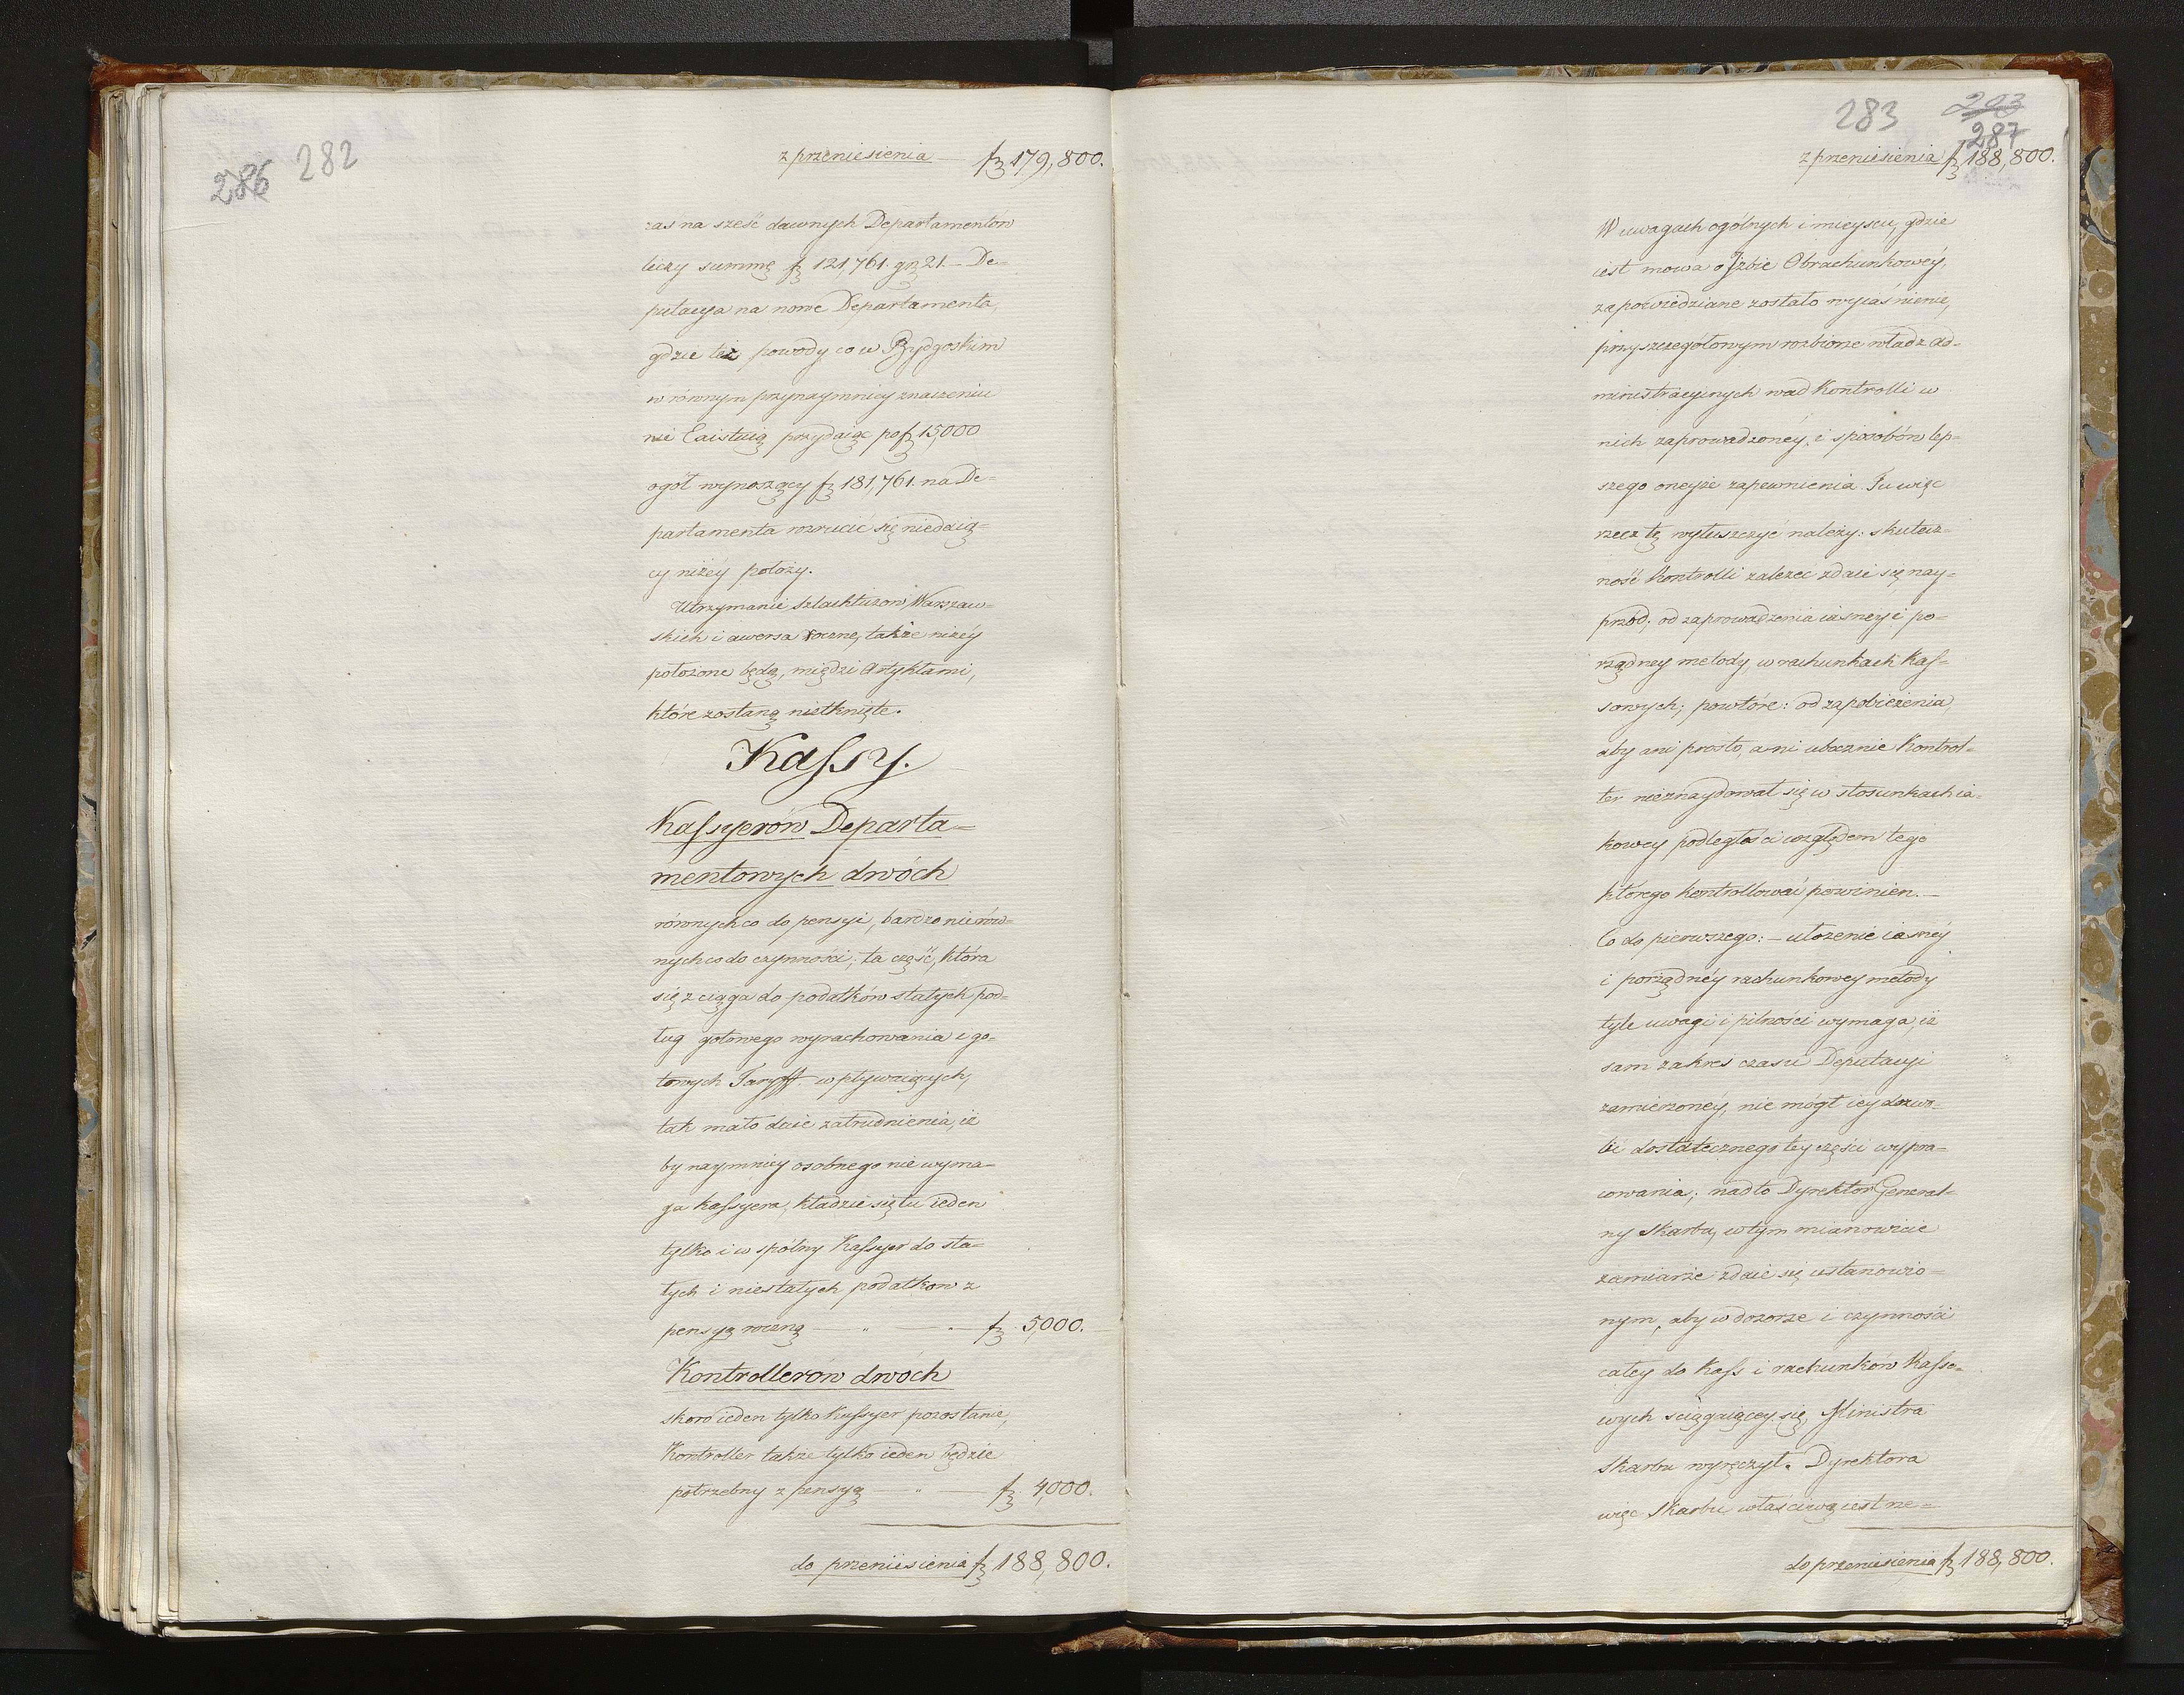 286 282
z przeniesienia — fz 179,800.
zas na sześć dawnych Departamentow
liczy summę fz 121,761. gr 21. — De=
putacya na nowe Departamenta,
gdzie też powody co w Bydgoskim
w równym przynaymniey znaczeniu
nie Existuią przydaiąc po fz 15,000
ogoł wynoszący fz 181,761. na De=
partamenta rozrucić się niedaią=
cy niżey położy.
Utrzymanie Szlachtuzow Warszaw=
skich i awersa roczne, także niżéy
położone będą, między Artykłami,
które zostaną nietknięte.
Kassy.
Kassyerów Departa=
mentowych dwóch
równych co do pensyi, bardzo nierów=
nych co do czynności; ta część, która
się zciąga do podatków stałych pod=
ług gotowego wyrachowania i go=
towych Taryff wpływaiących,
tak mało daie zatrudnienia, iż
by naymniey osobnego nie wyma=
ga kassyera, kładzie się tu ieden
tylko i wspólny Kassyer do sta=
łych i niestałych podatkow z
pensyą roczną — „ — . fz 5,000.
Kontrollerów dwóch
skoro ieden tylko Kassyer pozostanie,
Kontroller także tylko ieden będzie
potrzebny z pensyą — „ — fz 4,000.
do przeniesienia fz 188,800.
283 283
287
z przeniesienia fz 188,800.
W uwagach ogólnych i mieyscu, gdzie
iest mowa o Izbie Obrachunkowéy,
zapowiedziane zostało wyiaśnienie,
przy szczegółowym rozbiorze władz ad=
ministracyinych wad Kontrolli w
nich zaprowadzonéy, i sposobów lep=
szego oneyże zapewnienia. Tu więc
rzecz tę wyłuszczyć należy: skutecz=
ność Kontrolli zależeć zdaie się nay=
przód; od zaprowadzenia iasney i po=
rządney metody w rachunkach Kas=
sowych; powtóre: od zapobieżenia,
aby ani prosto, ani ubocznie Kontrol=
ler nieznaydował się w stosunkach ia=
kowey podległości względem tego
którego kontrollować powinien. —
Co do pierwszego: — ułożenie iasnéy
i porządnéy rachunkowey metody
tyle uwagi i pilności wymaga, iż
sam zakres czasu Deputacyi
zamierzonéy, nie mógł iey dozwo=
lić dostatecznego tey części wypra=
cowania; nadto Dyrektor General=
ny Skarbu, w tym mianowicie
zamiarze zdaie się ustanowio=
nym, aby w dozorze i czynności
całey do Kass i rachunków Kasso=
wych sciągaiącey się, Ministra
Skarbu wyręczył. Dyrektora
więc Skarbu właściwą iest rze=
do przeniesienia fz 188,800.